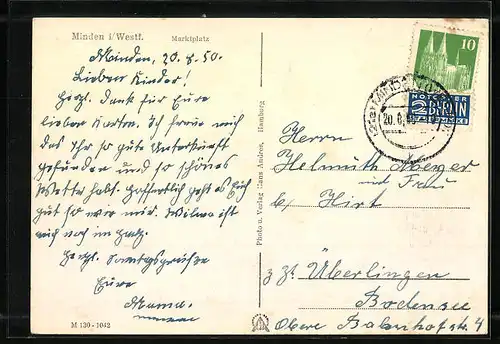 Minden i/Westf. Marktplatz
Minden, 20.8.50.
Lieben Kinder!
Herzl. Dank für Eure
lieben Karten. Ich freue mich
das Ihr so gute Unterkunft
gefunden und so schönes
Wetter habt. Hoffentlich geht es Euch
gut so wie mir. Wilma ist
auch noch im Harz.
Herzl. Sonntagsgrüsse
Eure
Mama.
M 130 - 1042
Photo u. Verlag Hans Andres, Hamburg
10
NOTOPFER
2 BERLIN
STEUERMARKE
MINDEN
20.8.
Herrn
Helmuth Meyer
und Frau
b/ Hirt
z. Zt. Überlingen
Bodensee
Obere Bahnhofstr. 4